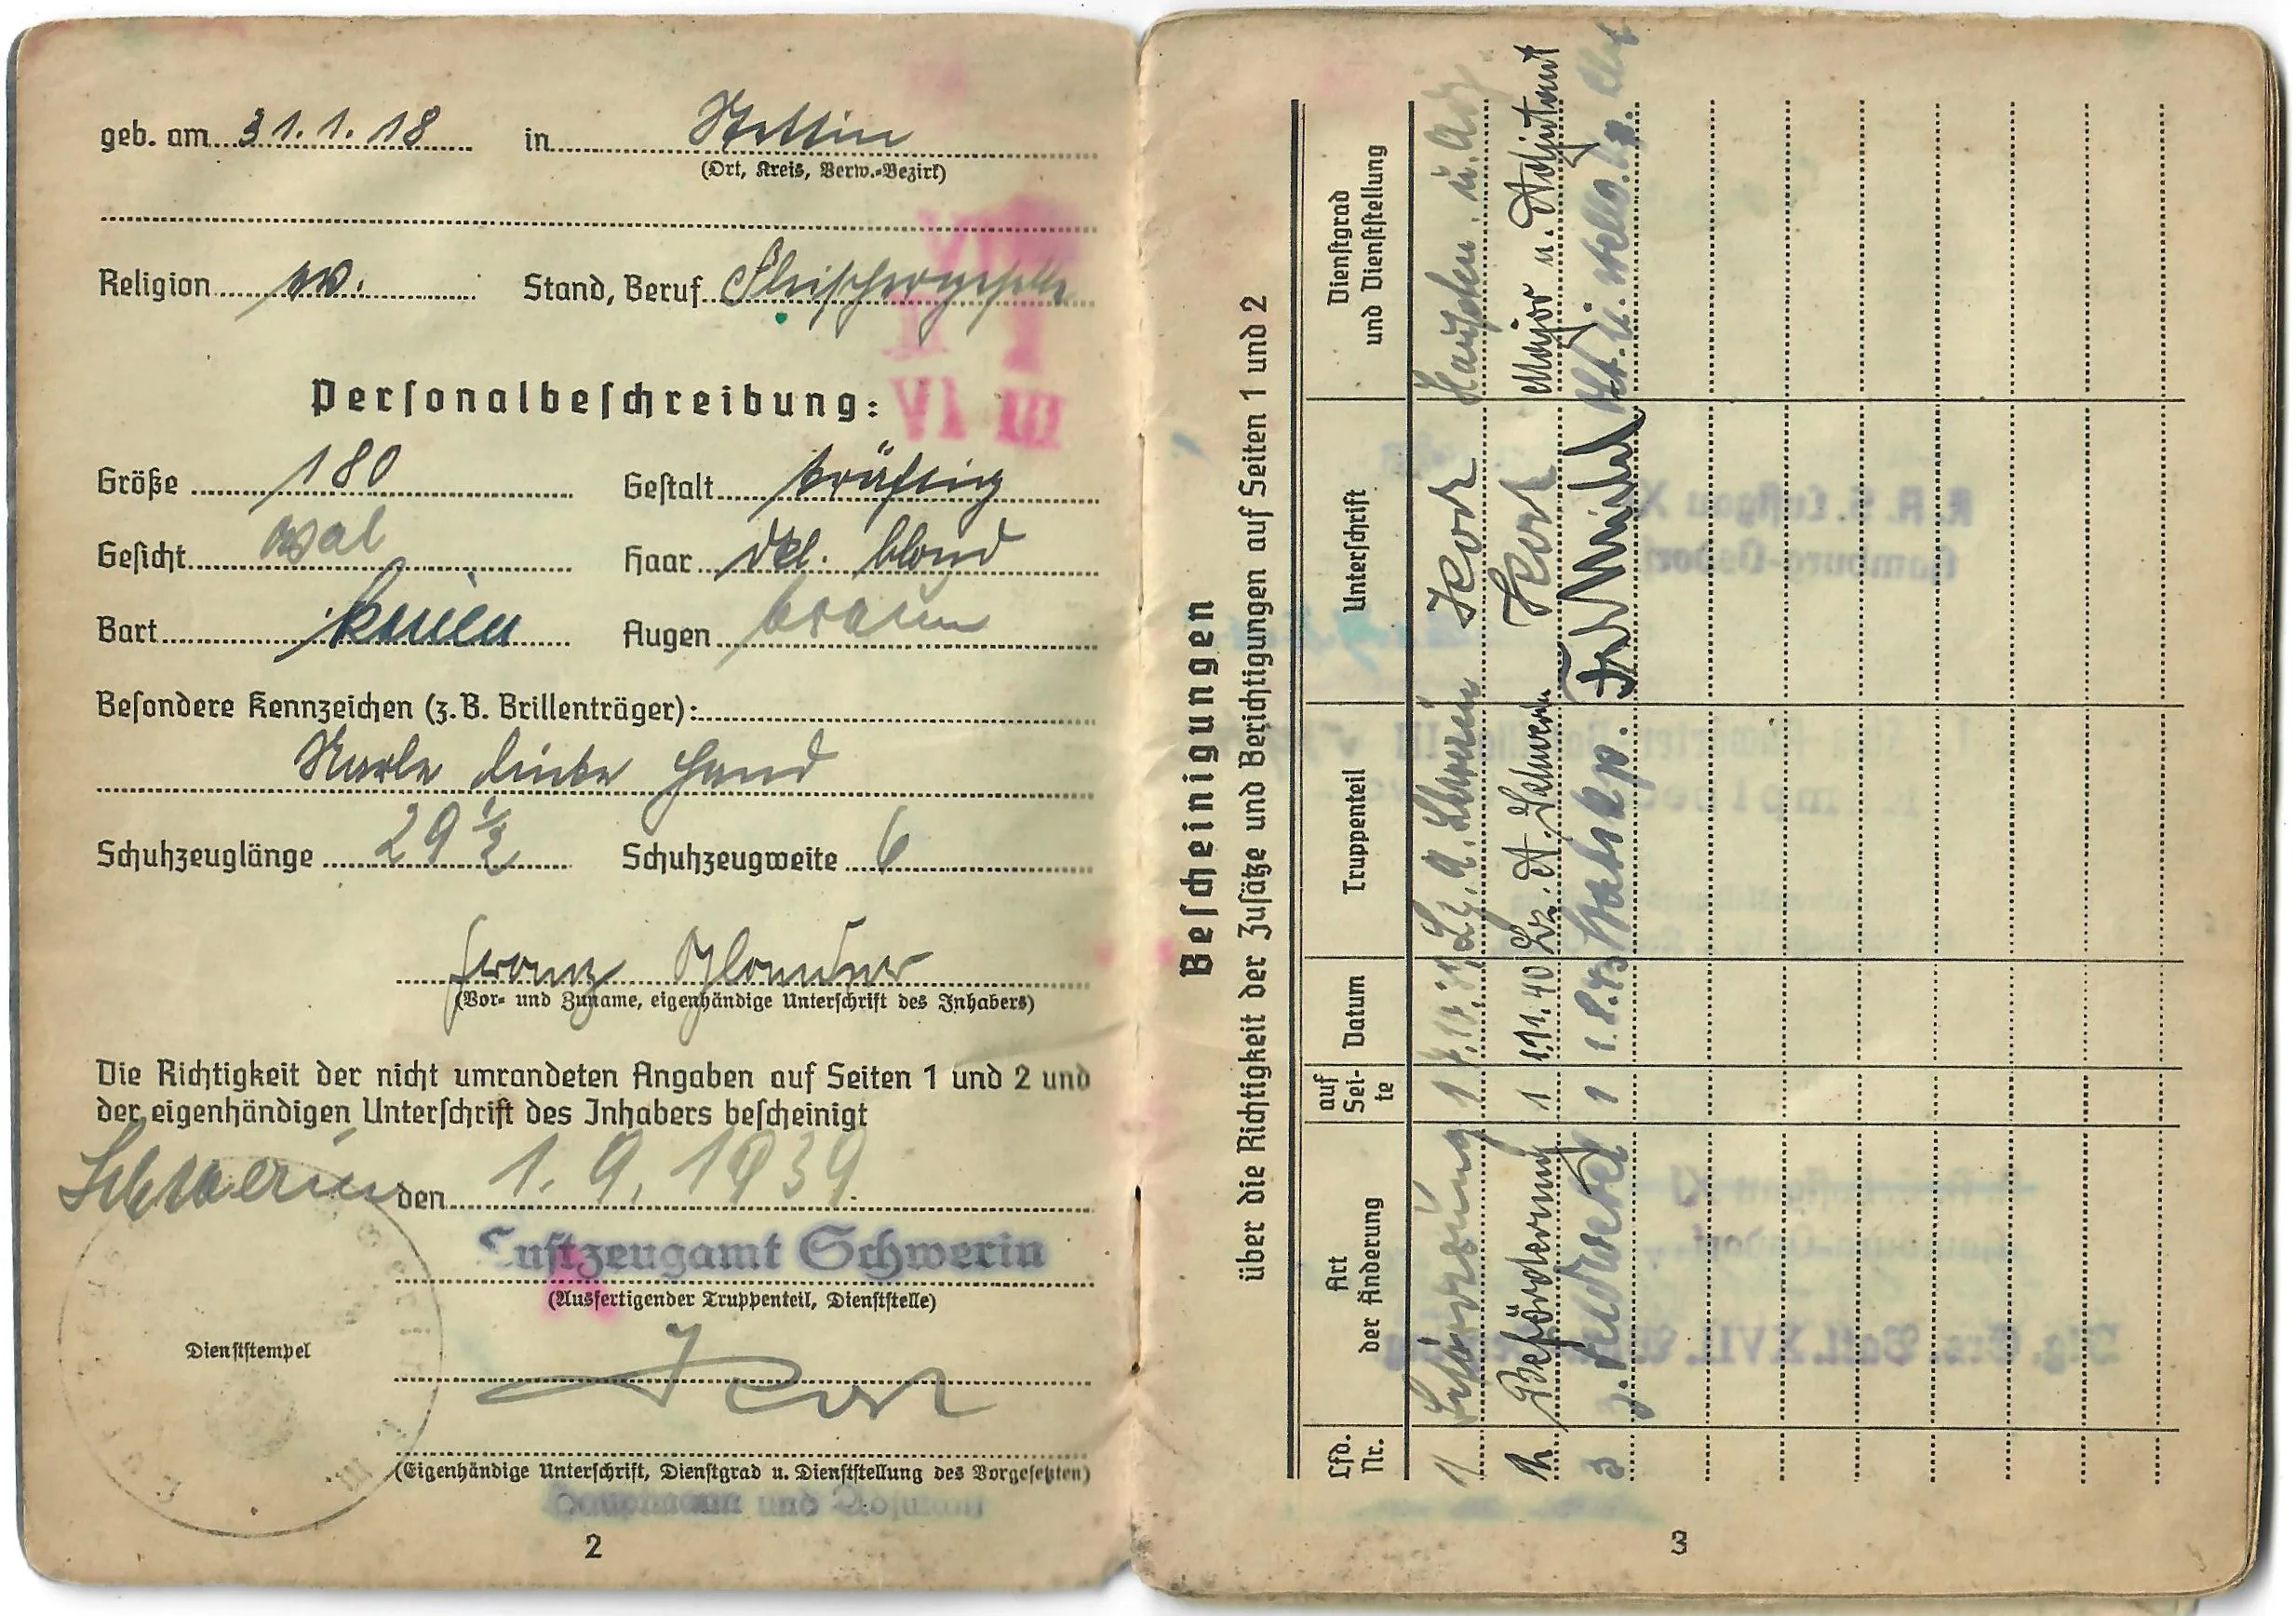 geb. am 31.1.18 in Stettin
(Ort, Kreis, Verw.-Bezirk)
Religion ev. Stand, Beruf Fleischergeselle
Personalbeschreibung:
Größe 180 Gestalt kräftig
Gesicht oval Haar dkl. blond
Bart keinen Augen braun
Besondere Kennzeichen (z. B. Brillenträger):
Narbe linke Hand
Schuhzeuglänge 29 1/2 Schuhzeugweite 6
Franz
(Vor- und Zuname, eigenhändige Unterschrift des Inhabers)
Die Richtigkeit der nicht umrandeten Angaben auf Seiten 1 und 2 und
der eigenhändigen Unterschrift des Inhabers bescheinigt
Schwerin den 1. 9. 1939.
Luftzeugamt Schwerin
(Ausfertigender Truppenteil, Dienststelle)
Dienststempel
(Eigenhändige Unterschrift, Dienstgrad u. Dienststellung des Vorgesetzten)
Hauptmann und Adjutant
2
III IV
Bescheinigungen
über die Richtigkeit der Zusätze und Berichtigungen auf Seiten 1 und 2
Lfd. Nr. Art der Änderung auf Seite Datum Truppenteil Unterschrift Dienstgrad und Dienststellung
1 1 Schwerin
2 Beförderung 1 1.11.40 Lz. A. Schwerin Major u. Adjutant
3 1 1.8.43 Stabskp.
3